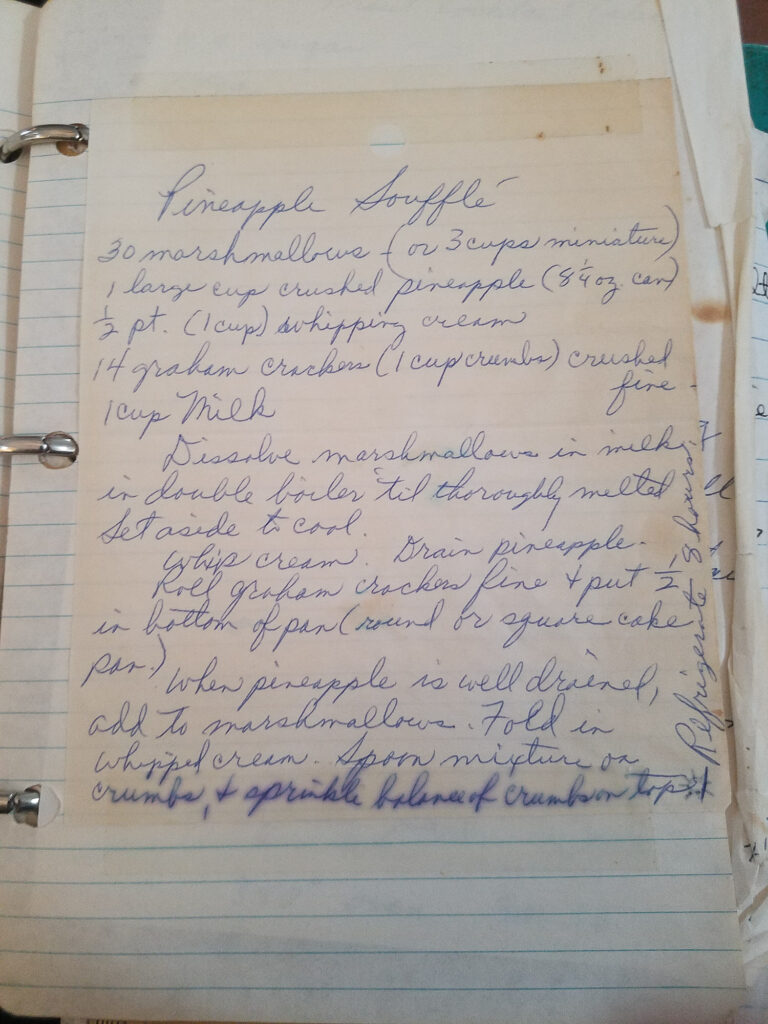 Pineapple Soufflé
30 marshmallows - (or 3 cups miniature)
1 large cup crushed pineapple (8 1/4 oz. can)
1/2 pt. (1 cup) whipping cream
14 graham crackers (1 cup crumbs) crushed
fine -
1 cup Milk
Dissolve marshmallows in milk
in double boiler 'til thoroughly melted
Set aside to cool.
Whip cream. Drain pineapple.
Roll graham crackers fine + put 1/2
in bottom of pan (round or square cake
pan.)
When pineapple is well drained,
add to marshmallows. Fold in
whipped cream. Spoon mixture on
crumbs, + sprinkle balance of crumbs on top.
+ Refrigerate 8 hours.